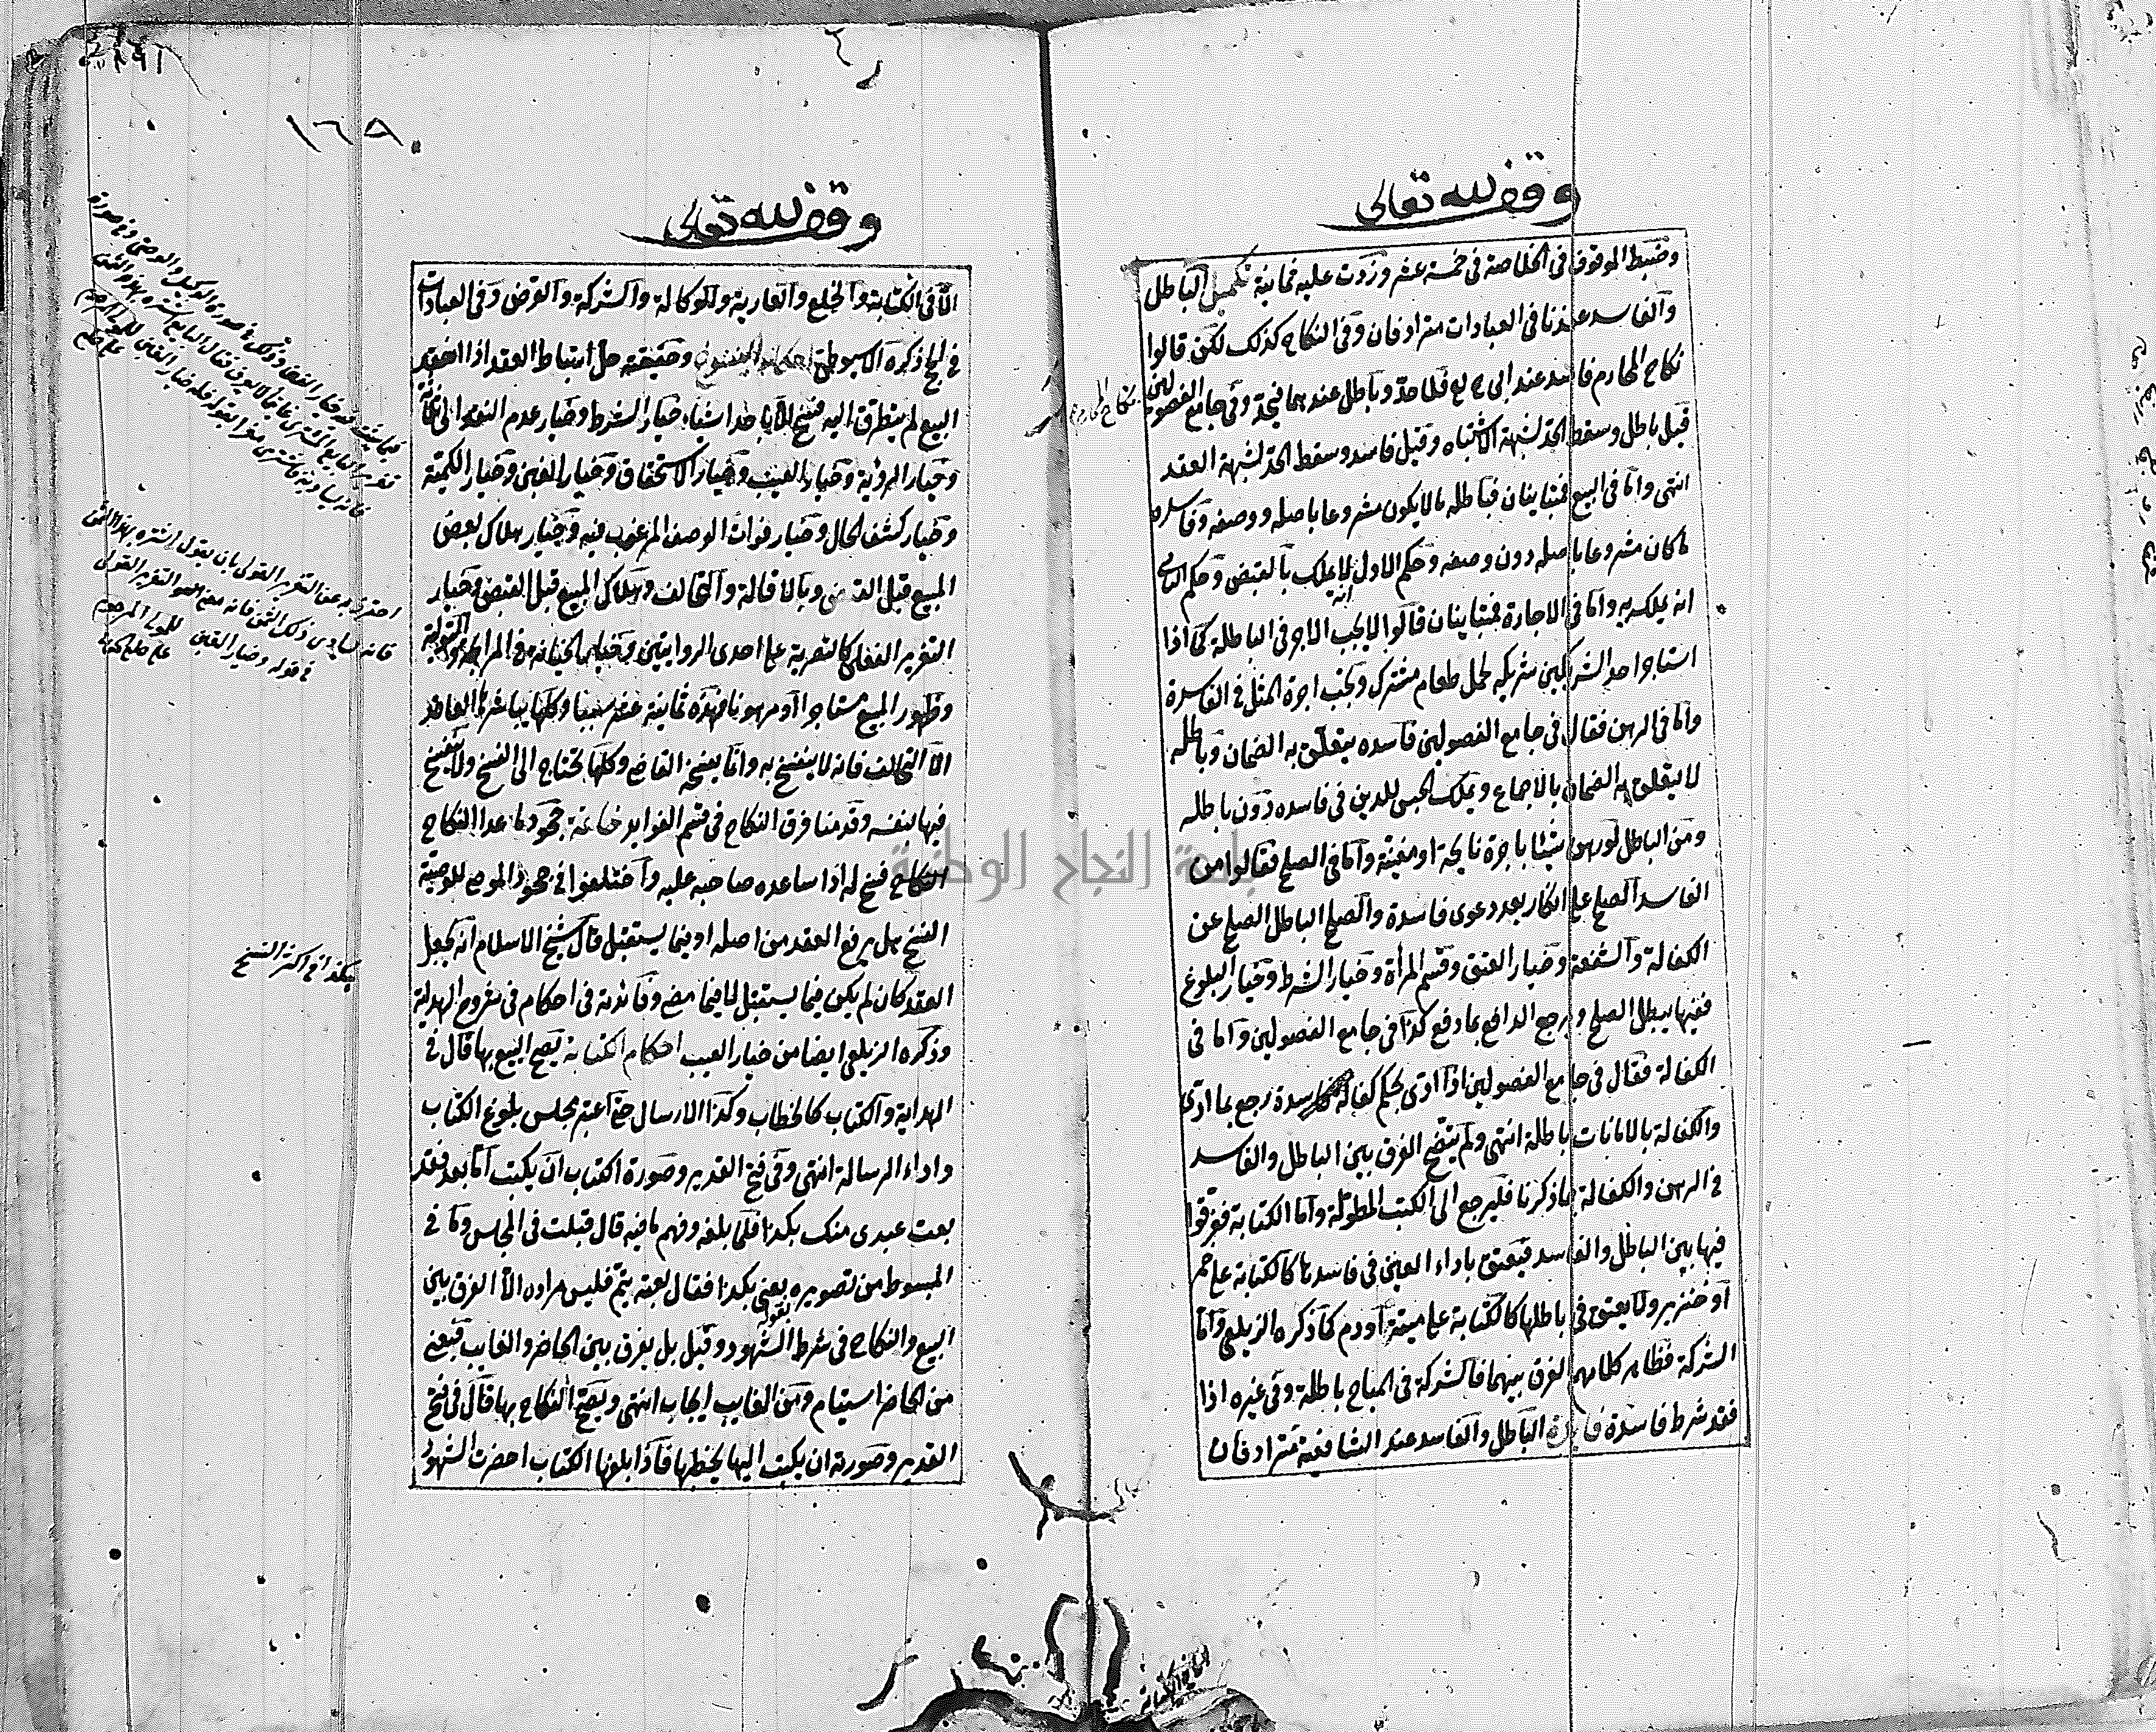 وقف لله تعالى
وضبط الموقوف في الخلاصة في خمسة عشر وزدت عليه ثمانية تكميل الباطل
والفاسد عندنا في العبادات مترادفان وفي النكاح كذلك لكن قالوا
نكاح المحارم فاسد عند ابي ح رح فلا حد وباطل عندهما فيحد وفي جامع الفصولين
نكاح المحارم
قيل باطل وسقط الحد لشبهة الاشتباه وقيل فاسد وسقط الحد لشبهة العقد
انتهى واما في البيع فمتباينان فباطله ما لا يكون مشروعا باصله ووصفه وفاسده
ما كان مشروعا باصله دون وصفه وحكم الاول انه لا يملك بالقبض وحكم الثاني
انه يملك به واما في الاجارة فمتباينان قالوا لا يجب الاجر في الباطلة كما اذا
استاجر احد الشريكين شريكه لحمل طعام مشترك ويجب اجرة المثل في الفاسدة
واما في الرهن فقال في جامع الفصولين فاسده يتعلق به الضمان وباطله
لا يتعلق به الضمان بالاجماع ويملك الحبس للدين في فاسده دون باطله
ومن الباطل لو رهن شيئا باجرة نايحة او مغنية واما في الصلح فقالوا من
الفاسد الصلح على انكار بعد دعوى فاسدة والصلح الباطل الصلح عن
الكفالة والشفعة وخيار العتق وقسم المرأة وخيار الشرط وخيار البلوغ
ففيها يبطل الصلح ويرجع الدافع بما دفع كذا في جامع الفصولين واما في
الكفالة فقال في جامع الفصولين اذا ادى بحكم كفالة فاسدة رجع بما ادى
والكفالة بالامانات باطلة انتهى ولم يتضح الفرق بين الباطل والفاسد
في الرهن والكفالة بما ذكرنا فليرجع الى الكتب المطولة واما الكتابة ففرقوا
فيها بين الباطل والفاسد فيعتق باداء العين في فاسدها كالكتابة على خمر
او خنزير ولا يعتق في باطلها كالكتابة على ميتة او دم كما ذكره الزيلعي واما
الشركة فظاهر كلامهم الفرق بينهما فالشركة في المباح باطلة وفي غيره اذا
فقد شرط فاسدة فايدة الباطل والفاسد عند الشافعية مترادفان
وقف لله تعالى
١٦٩
الا في الكتابة والخلع والعارية والوكالة والشركة والقرض وفي العبادات
في الحج ذكره الاسيوطي احكام الفسوخ وحقيقته حل ارتباط العقد اذا انعقد
البيع لم يتطرق اليه فسخ الا باحد اشياء خيار الشرط وخيار عدم النقد الى ثلاثة
وخيار الرؤية وخيار العيب وخيار الاستحقاق وخيار الغبن وخيار الكمية
وخيار كشف الحال وخيار فوات الوصف المرغوب فيه وخيار هلاك بعض
المبيع قبل القبض وبالاقالة والتحالف وهلاك المبيع قبل القبض وخيار
التغرير الفعلي كالتصرية على احدى الروايتين وخيار الخيانة في المرابحة والتولية
وظهور المبيع مستاجرا او مرهونا فهذه ثمانية عشر سببا وكلها يباشرها العاقد
الا التحالف فانه لا ينفسخ به وانما يفسخه القاضي وكلها تحتاج الى الفسخ ولا ينفسخ
فيها بنفسه وقدمنا فرق النكاح في قسم الفوايد خاتمة جحود ما عدا النكاح
فسخ له اذا ساعده صاحبه عليه واختلفوا في جحود الموصي للوصية
الفسخ هل يرفع العقد من اصله او فيما يستقبل قال شيخ الاسلام انه يجعل
العقد كان لم يكن فيما يستقبل لا فيما مضى وفائدته في احكام في شروح الهداية
وذكره الزيلعي ايضا من خيار العيب احكام الكتابة يصح البيع بها قال في
الهداية والكتاب كالخطاب وكذا الارسال حتى اعتبر مجلس بلوغ الكتاب
واداء الرسالة انتهى وفي فتح القدير وصورة الكتاب ان يكتب اما بعد فقد
بعت عبدي منك بكذا فلما بلغه وفهم ما فيه قال قبلت في المجلس وما في
المبسوط من تصويره بعني بكذا فقال بعته يتم فليس مراده الا الفرق بين
البيع والنكاح في شرط الشهود وقيل بل يفرق بين الحاضر والغايب فبعني
من الحاضر استيام ومن الغايب ايجاب انتهى ويصح النكاح بها قال في فتح
القدير وصورته ان يكتب اليها يخطبها فاذا بلغها الكتاب احضرت الشهود
هكذا في اكثر النسخ
جامعة النجاح الوطنية